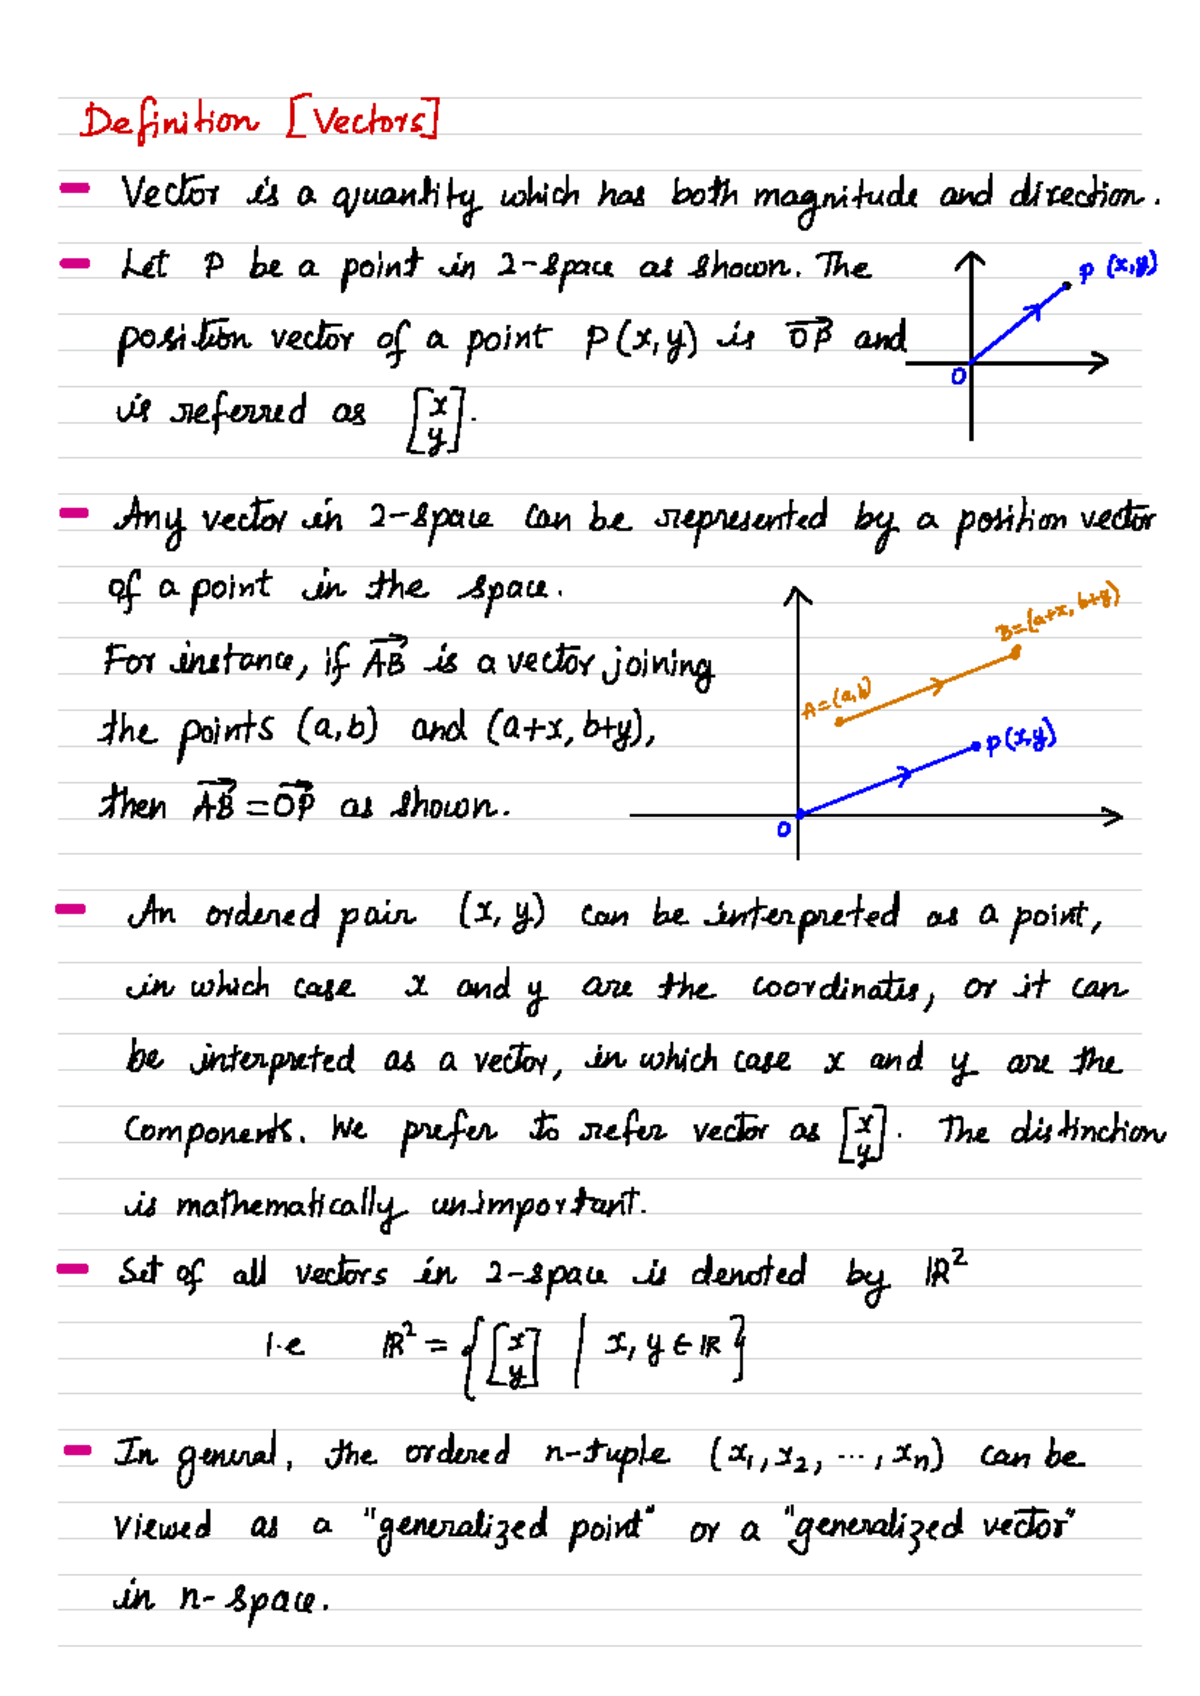 Definition [Vectors]
- Vector is a quantity which has both magnitude and direction.
- Let P be a point in 2-space as shown. The
position vector of a point P(x,y) is \overrightarrow{OP} and
is referred as \begin{bmatrix} x \\ y \end{bmatrix}.
P (x,y)
O
- Any vector in 2-space can be represented by a position vector
of a point in the space.
For instance, if \overrightarrow{AB} is a vector joining
the points (a,b) and (a+x, b+y),
then \overrightarrow{AB} = \overrightarrow{OP} as shown.
B=(a+x, b+y)
A=(a,b)
P(x,y)
O
- An ordered pair (x, y) can be interpreted as a point,
in which case x and y are the coordinates, or it can
be interpreted as a vector, in which case x and y are the
components. We prefer to refer vector as \begin{bmatrix} x \\ y \end{bmatrix}. The distinction
is mathematically unimportant.
- Set of all vectors in 2-space is denoted by ℝ²
i.e ℝ² = { \begin{bmatrix} x \\ y \end{bmatrix} | x, y ∈ ℝ }
- In general, the ordered n-tuple (x₁, x₂, ..., xₙ) can be
viewed as a "generalized point" or a "generalized vector"
in n-space.